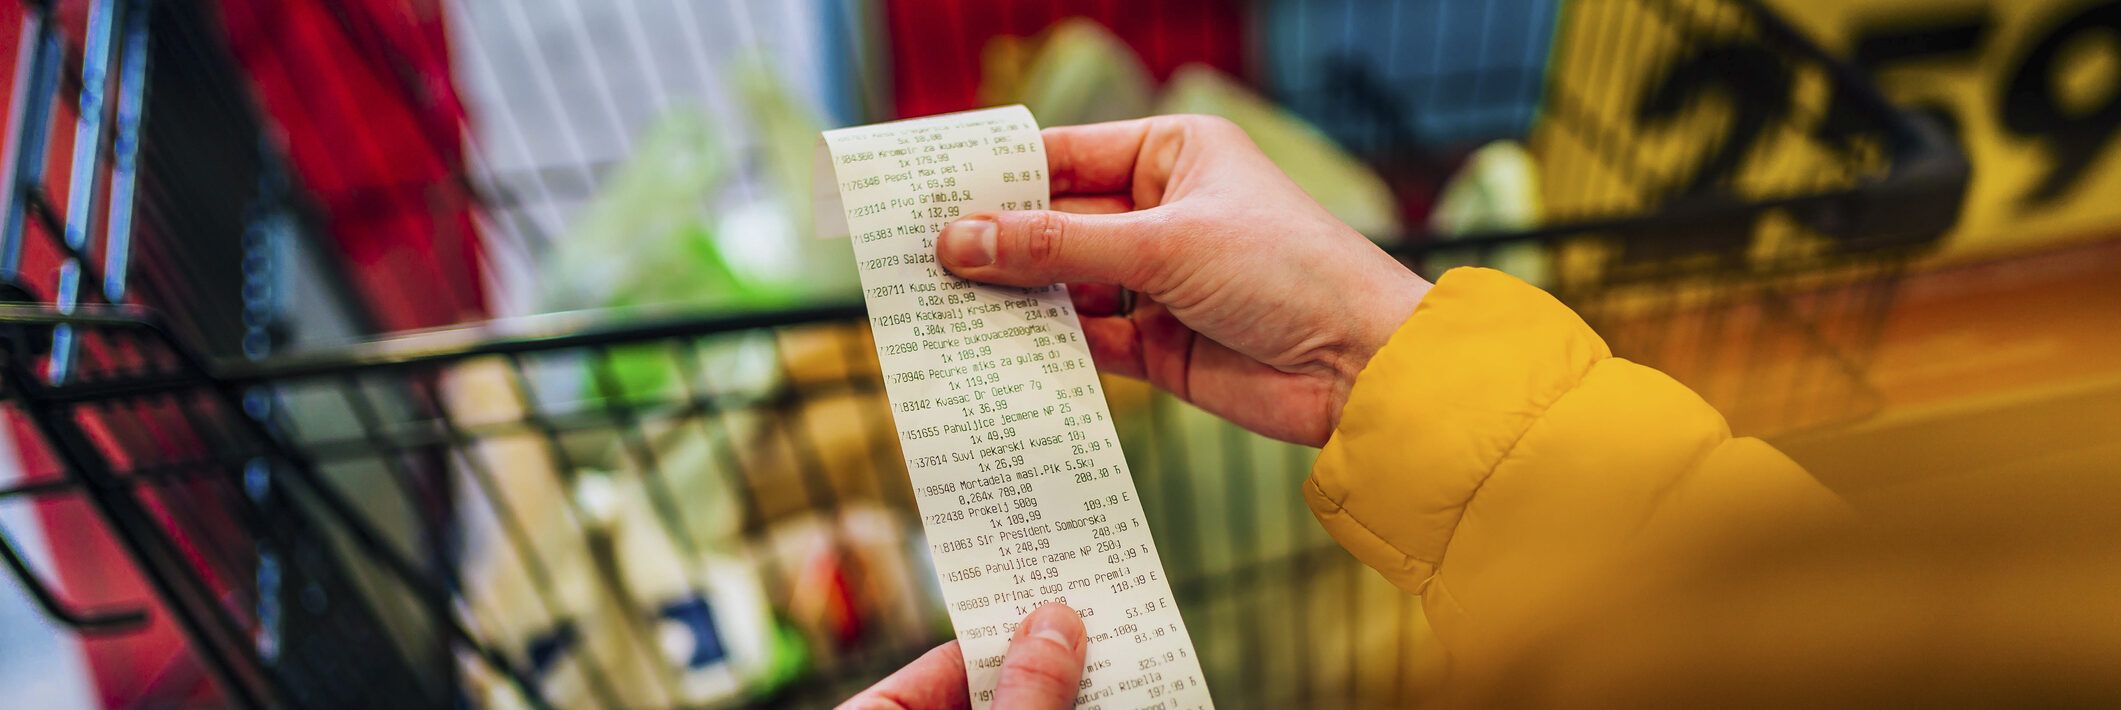 5x 10,00 50.00
7304360 Krompir za kuvanje i pec
1x 179,99 179.99 E
7176346 Pepsi Max pet 1l
1x 69,99 69.99 Ђ
7223114 Pivo Grimb.0,5L
1x 132,99 132.99
7195383 Mleko st
1x
7220729 Salata
1x
7220711 Kupus crveni
0,82x 69,99
7121649 Kackavalj Krstas Premia
0,304x 769,99 234.08 Ђ
7222690 Pecurke bukovace200gMaxi
1x 109,99 109.99 E
7570946 Pecurke miks za gulas du
1x 119,99 119.99 E
7183142 Kvasac Dr Oetker 7g
1x 36,99 36.99 Ђ
7451655 Pahuljice jecmene NP 25
1x 49,99 49.99 Ђ
7537614 Suvi pekarski kvasac 10g
1x 26,99 26.99 Ђ
7198548 Mortadela masl.Pik 5.5kg
0,264x 789,00 208.30 Ђ
7222438 Prokelj 500g
1x 109,99 109.99 E
7181063 Sir President Somborska
1x 248,99 248.99 Ђ
7451656 Pahuljice razane NP 250g
1x 49,99 49.99 Ђ
7486039 Pirinac dugo zrno Premia
1x 118,99 118.99 E
53.39 E
Prem.100g
83.98 Ђ
miks
325.19 Ђ
Natural Ribella
197.99 Ђ